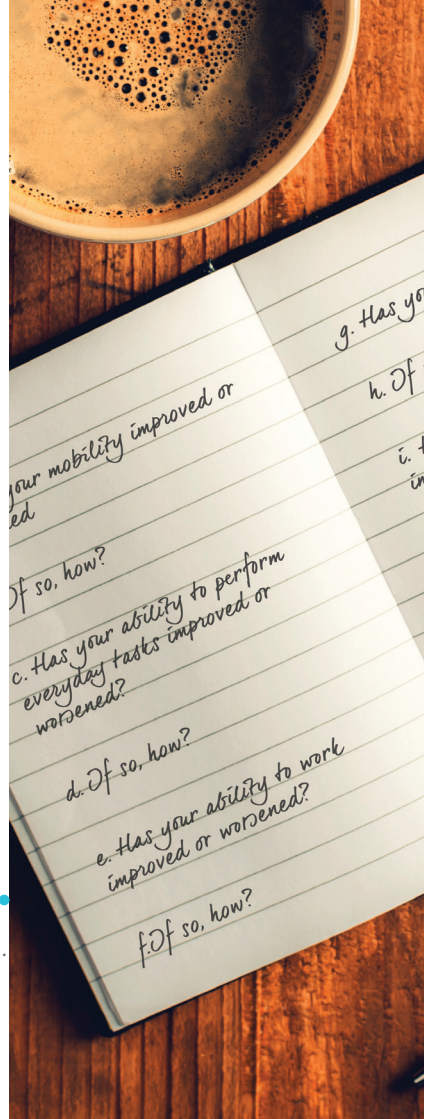 your mobility improved or
ed
If so, how?
c. Has your ability to perform
everyday tasks improved or
worsened?
d. If so, how?
e. Has your ability to work
improved or worsened?
f. If so, how?
g. Has yo
h. If
i.
im